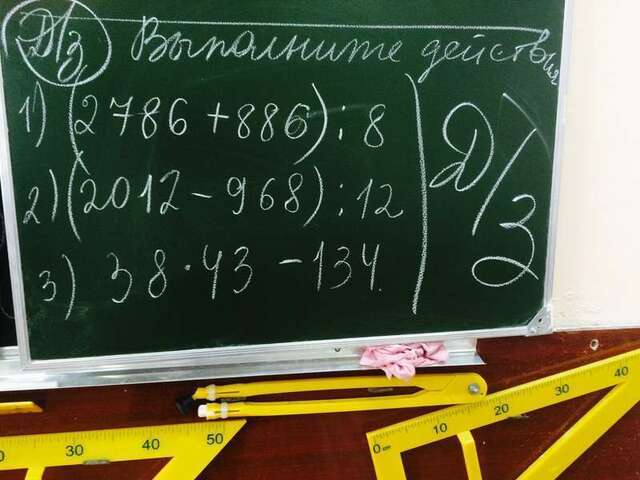 Д/з Выполните действия
1) (2786 + 886) : 8
2) (2012 - 968) : 12
3) 38 · 43 - 134.
Д/З
30 40 50
0 cm 10 20 30 40